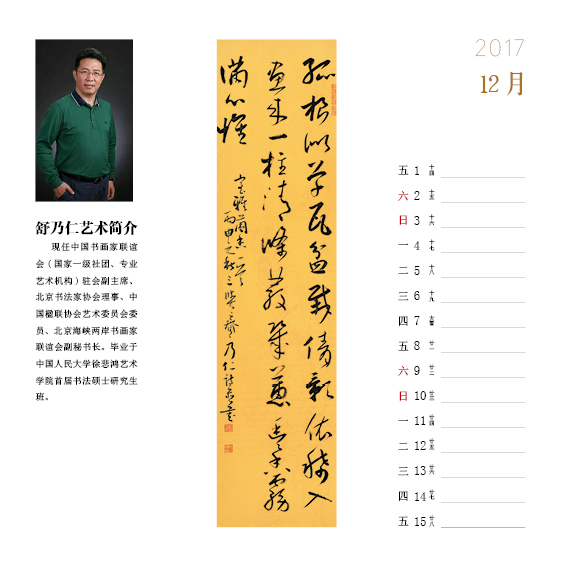 舒乃仁艺术简介
现任中国书画家联谊
会（国家一级社团、专业
艺术机构）驻会副主席、
北京书法家协会理事、中
国楹联协会艺术委员会委
员、北京海峡两岸书画家
联谊会副秘书长。毕业于
中国人民大学徐悲鸿艺术
学院首届书法硕士研究生
班。
孤根 瓦盆栽倩影依稀入
画来一柱清 香雾
满心怀
室雅兰香一首
丙申之秋 乃仁诗
2017
12月
五 1 十四
六 2 十五
日 3 十六
一 4 十七
二 5 十八
三 6 十九
四 7 大雪
五 8 廿一
六 9 廿二
日 10 廿三
一 11 廿四
二 12 廿五
三 13 廿六
四 14 廿七
五 15 廿八